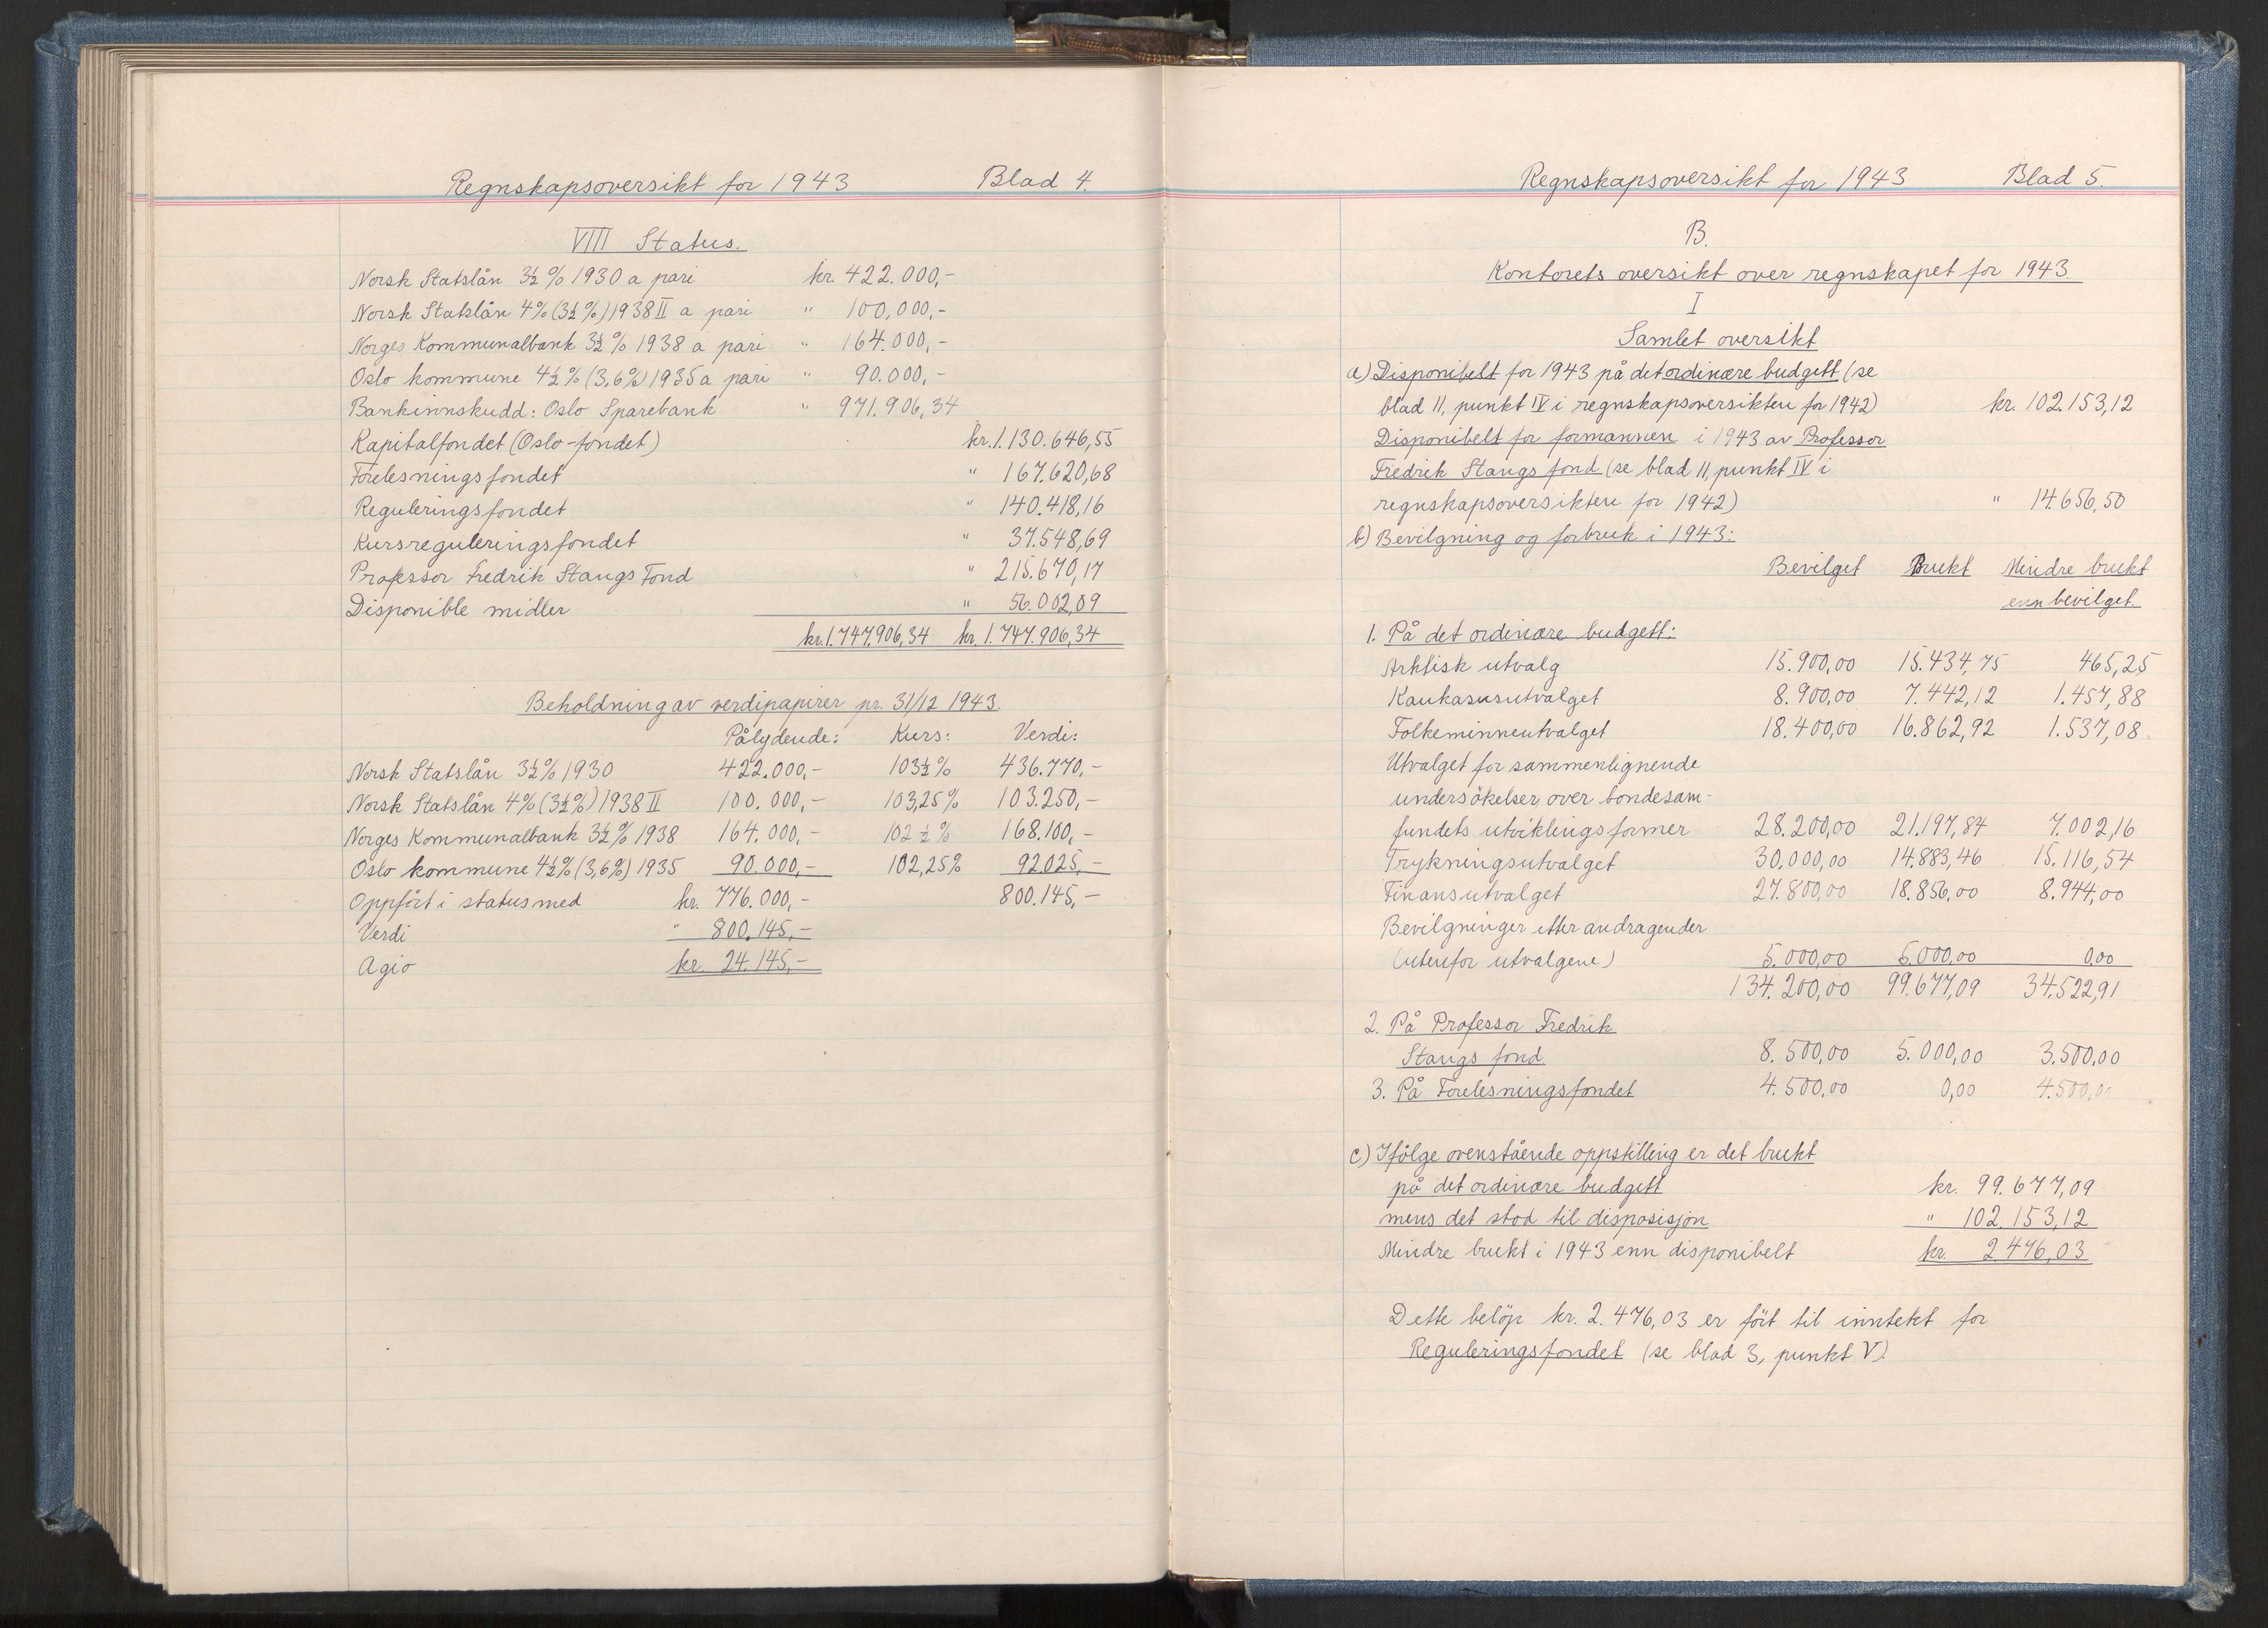 Regnskapsoversikt for 1943 Blad 4.
VIII Status.
Norsk Statslån 3½ % 1930 a pari kr. 422.000,-
Norsk Statslån 4% (3½ %) 1938 II a pari " 100,000,-
Norges Kommunalbank 3½ % 1938 a pari " 164.000,-
Oslo kommune 4½ % (3,6%) 1935 a pari " 90.000,-
Bankinnskudd: Oslo Sparebank " 971.906,34
Kapitalfondet (Oslo-fondet) kr. 1.130.646,55
Forelesningsfondet " 167.620,68
Reguleringsfondet " 140.418,16
Kursreguleringsfondet " 37.548,69
Professor Fredrik Stangs Fond " 215.670,17
Disponible midler " 56.002,09
kr. 1.747.906,34 kr. 1.747.906,34
Beholdning av verdipapirer pr. 31/12 1943.
Pålydende: Kurs: Verdi:
Norsk Statslån 3½ % 1930 422.000,- 103½ % 436.770,-
Norsk Statslån 4% (3½ %) 1938 II 100.000,- 103,25 % 103.250,-
Norges Kommunalbank 3½ % 1938 164.000,- 102 ½ % 168.100,-
Oslo kommune 4½ % (3,6%) 1935 90.000,- 102,25% 92.025,-
Oppført i status med kr. 776.000,- 800.145,-
Verdi " 800.145,-
Agio kr. 24.145,-
Regnskapsoversikt for 1943 Blad 5.
B.
Kontorets oversikt over regnskapet for 1943.
I
Samlet oversikt
a) Disponibelt for 1943 på det ordinære budgett (se
blad 11, punkt IV i regnskapsoversikten for 1942) kr. 102.153,12
Disponibelt for formannen i 1943 av Professor
Fredrik Stangs fond (se blad 11, punkt IV i
regnskapsoversikten for 1942) " 14.656,50
b) Bevilgning og forbruk i 1943:
Bevilget Brukt Mindre brukt
enn bevilget.
1. På det ordinære budgett:
Arktisk utvalg 15.900,00 15.434,75 465,25
Kaukasusutvalget 8.900,00 7.442,12 1.457,88
Folkeminneutvalget 18.400,00 16.862,92 1.537,08
Utvalget for sammenlignende
undersökelser over bondesam-
fundets utviklingsformer 28.200,00 21.197,84 7.002,16
Trykningsutvalget 30.000,00 14.883,46 15.116,54
Finansutvalget 27.800,00 18.856,00 8.944,00
Bevilgninger etter andragender
(utenfor utvalgene) 5.000,00 5.000,00 0,00
134.200,00 99.677,09 34.522,91
2. På Professor Fredrik
Stangs fond 8.500,00 5.000,00 3.500,00
3. På Forelesningsfondet 4.500,00 0,00 4.500,00
c) Ifölge ovenstående oppstilling er det brukt
på det ordinære budgett kr. 99.677,09
mens det stod til disposisjon " 102.153,12
Mindre brukt i 1943 enn disponibelt kr. 2.476,03
Dette belöp kr. 2.476,03 er fört til inntekt for
Reguleringsfondet (se blad 3, punkt V).